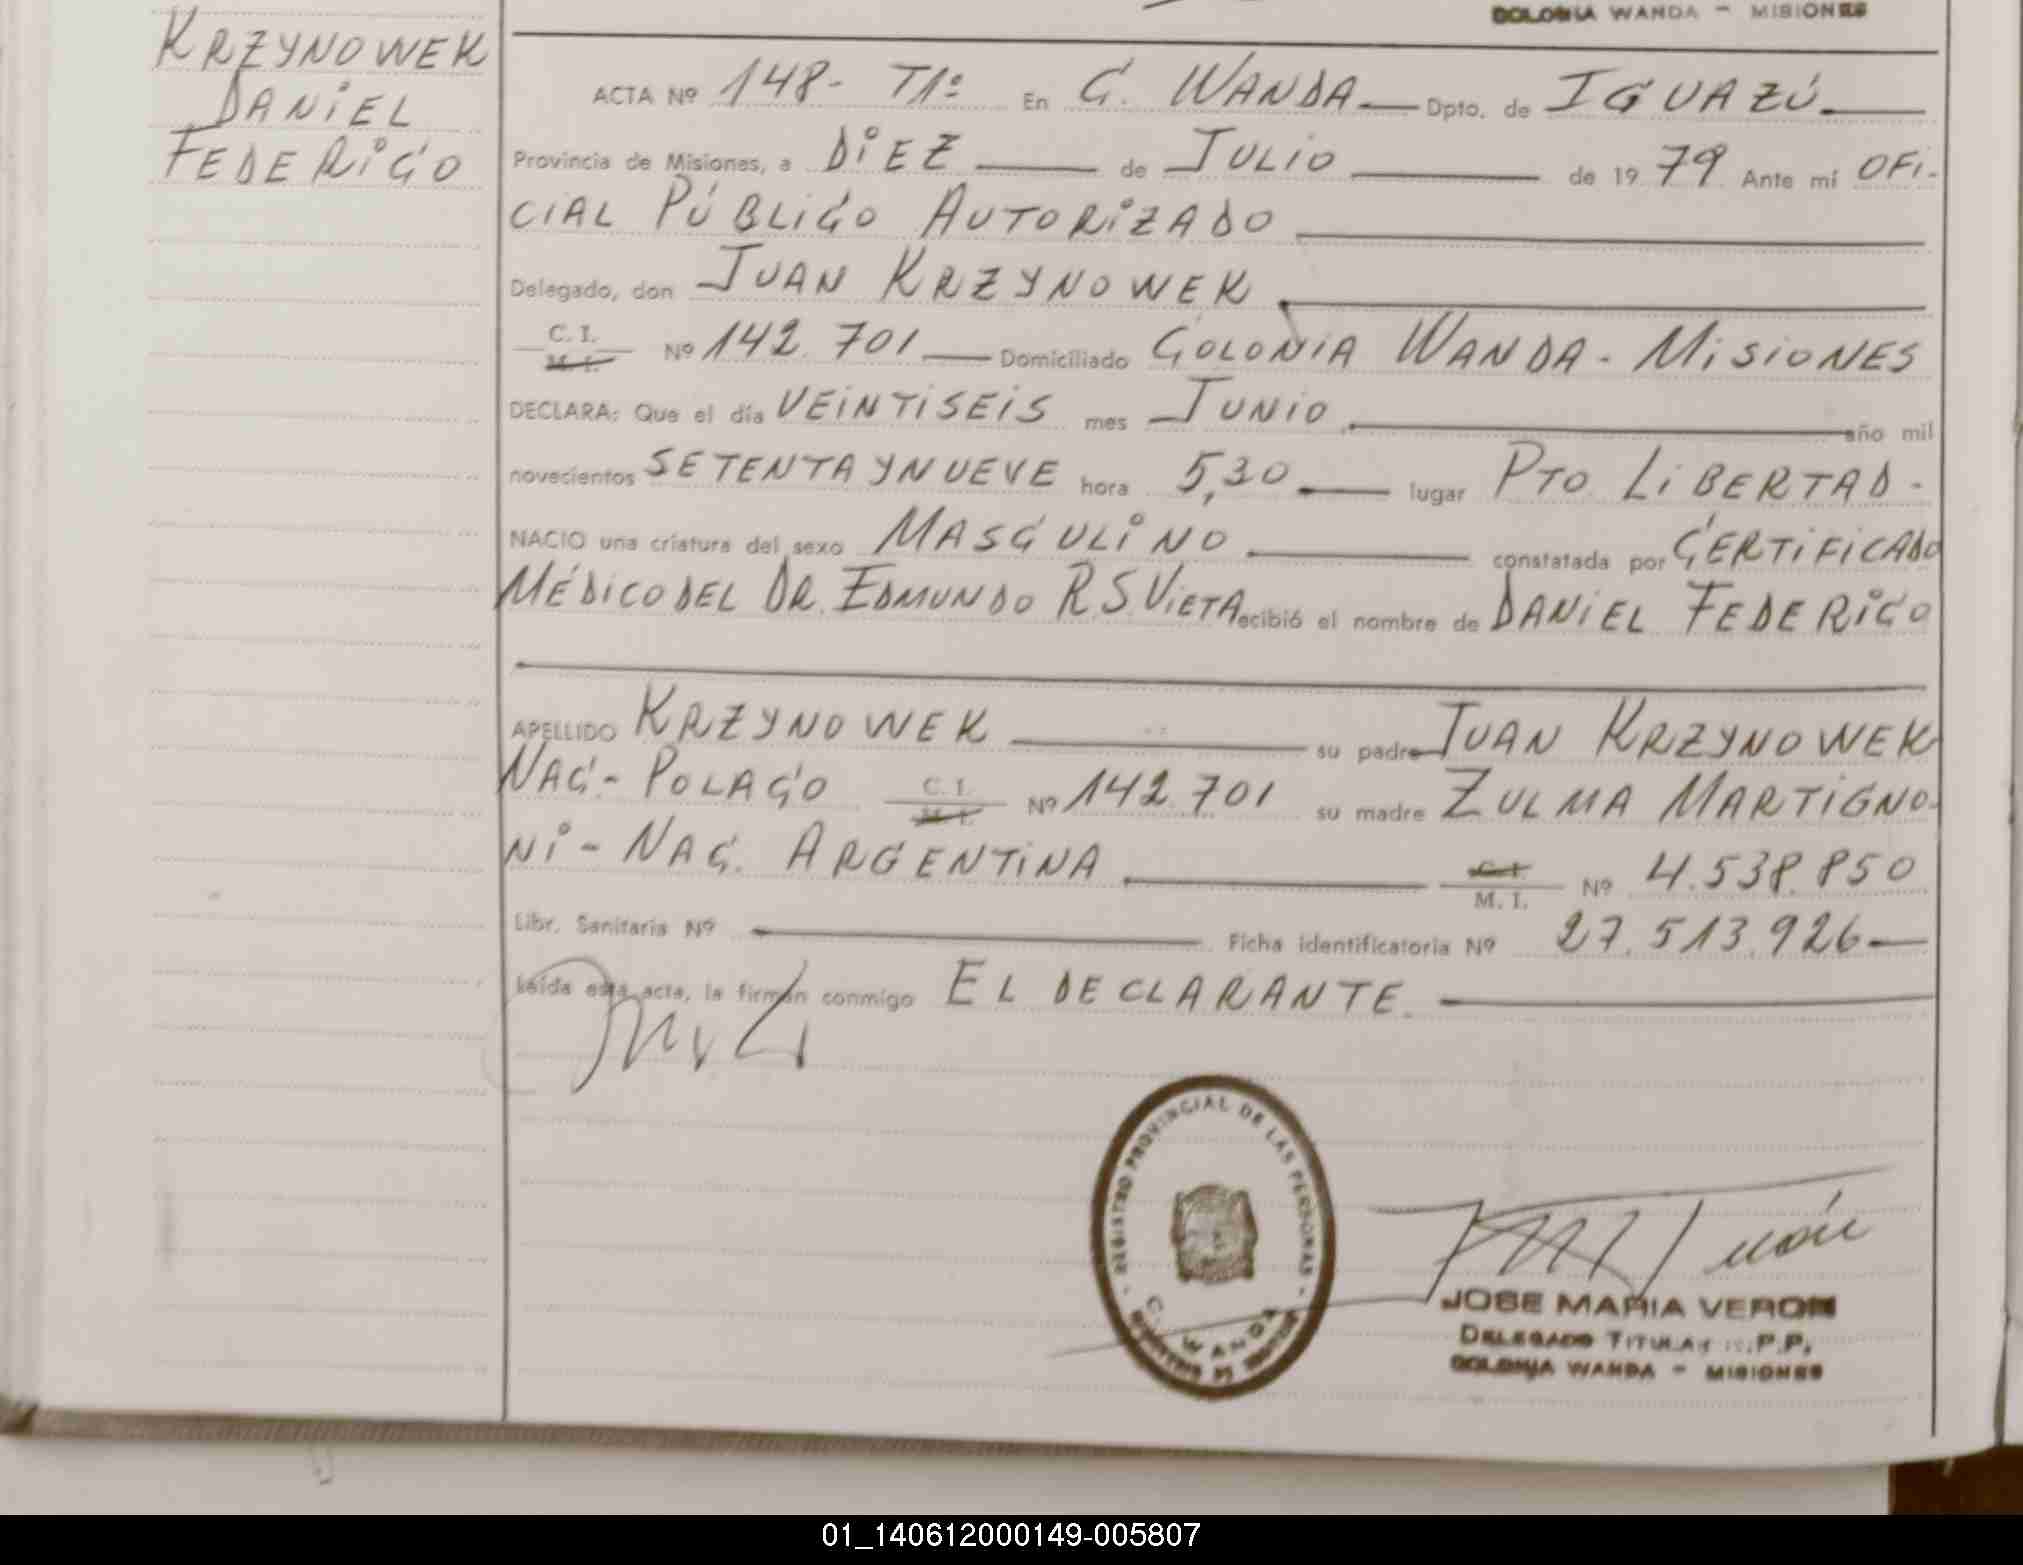 COLONIA WANDA - MISIONES
KRZYNOWEK
DANIEL
FEDERICO
ACTA Nº 148- T1º En C. WANDA Dpto. de IGUAZÚ
Provincia de Misiones, a DIEZ de JULIO de 1979 Ante mí OFI-
CIAL PÚBLICO AUTORIZADO
Delegado, don JUAN KRZYNOWEK
C. I.
M. I.
Nº 142.701 Domiciliado COLONIA WANDA - MISIONES
DECLARA: Que el día VEINTISEIS mes JUNIO año mil
novecientos SETENTA Y NUEVE hora 5,30 lugar PTO LIBERTAD -
NACIO una criatura del sexo MASCULINO constatada por CERTIFICADO
MÉDICO DEL DR. EDMUNDO R.S. VIETA recibió el nombre de DANIEL FEDERICO
APELLIDO KRZYNOWEK su padre JUAN KRZYNOWEK
NAC - POLACO C. I. M. I. Nº 142.701 su madre ZULMA MARTIGNO-
NI - NAC. ARGENTINA C. I. M. I. Nº 4.538.850
Libr. Sanitaria Nº Ficha identificatoria Nº 27.513.926
Leída esta acta, la firman conmigo EL DECLARANTE.
REGISTRO PROVINCIAL DE LAS PERSONAS
C. WANDA
JOSE MARIA VERON
DELEGADO TITULAR R.P.P.
COLONIA WANDA - MISIONES
01_140612000149-005807